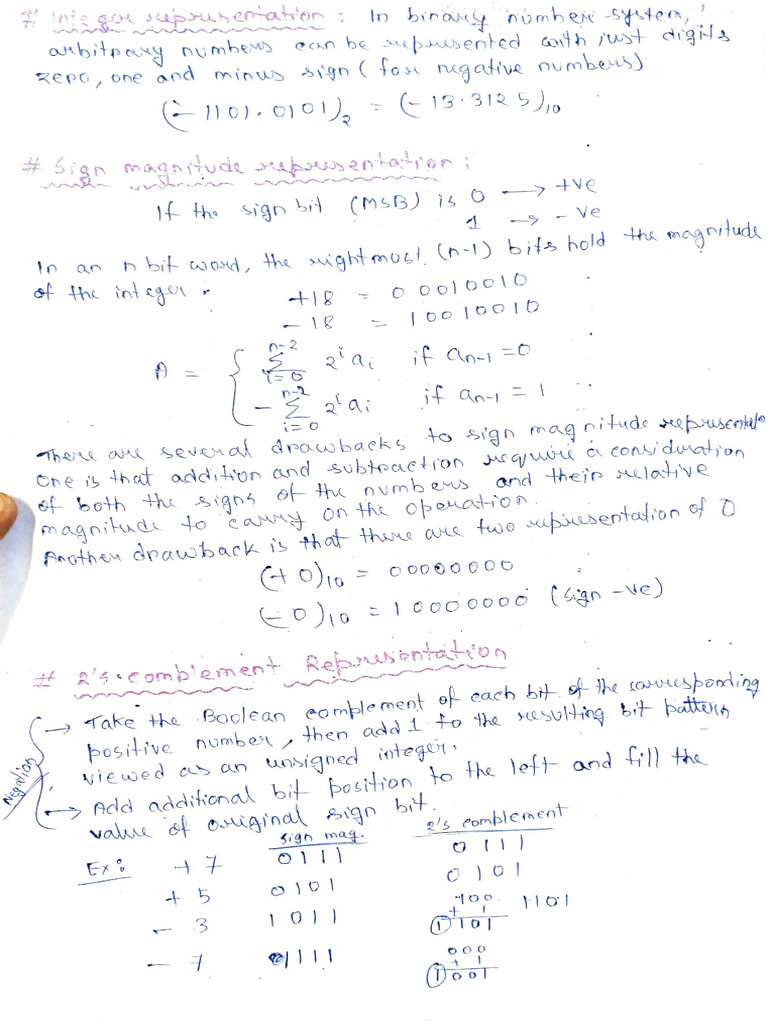 # Integer representation : In binary number system,
arbitrary numbers can be represented with just digits
zero, one and minus sign (for negative numbers)
(- 1101.0101)₂ = (- 13.3125)₁₀
# Sign magnitude representation :
If the sign bit (MSB) is 0 → +ve
1 → - ve
In an n bit word, the rightmost (n-1) bits hold the magnitude
of the integer.
+18 = 00010010
- 18 = 10010010
A = { Σ_{i=0}^{n-2} 2^i a_i if a_{n-1} = 0
- Σ_{i=0}^{n-2} 2^i a_i if a_{n-1} = 1
There are several drawbacks to sign magnitude representatn
One is that addition and subtraction require a consideration
of both the signs of the numbers and their relative
magnitude to carry on the operation.
Another drawback is that there are two representation of 0
(+ 0)₁₀ = 00000000
(- 0)₁₀ = 10000000 (sign -ve)
# 2's complement Representation
Negation
→ Take the Boolean complement of each bit of the corresponding
positive number, then add 1 to the resulting bit pattern
viewed as an unsigned integer.
→ Add additional bit position to the left and fill the
value of original sign bit.
sign mag. 2's complement
Ex: + 7 0111 0111
+ 5 0101 0101
- 3 1011 100 1101
+ 1
① 101
- 7 1111 000
+ 1
① 001